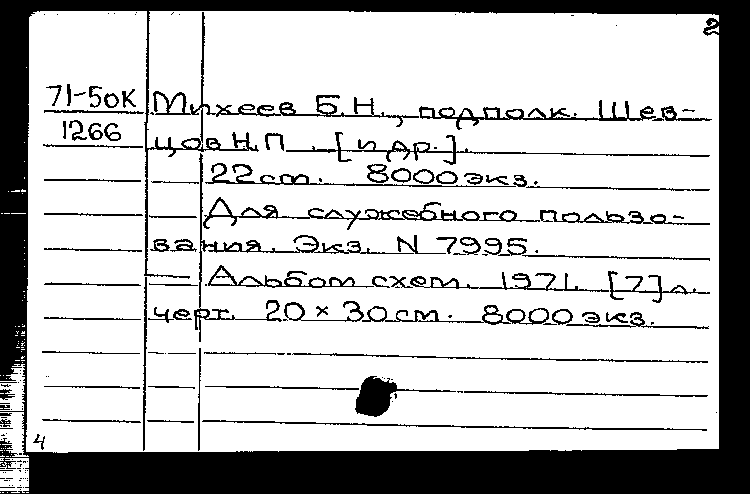 2
71-5ок Михеев Б.Н., подполк. Шев-
1266 цов Н.П. [и др.].
22 cm. 8000 экз.
Для служебного пользо-
вания. Экз. N 7995.
— Альбом схем. 1971. [7] л.
черт. 20 × 30 cm. 8000 экз.
4